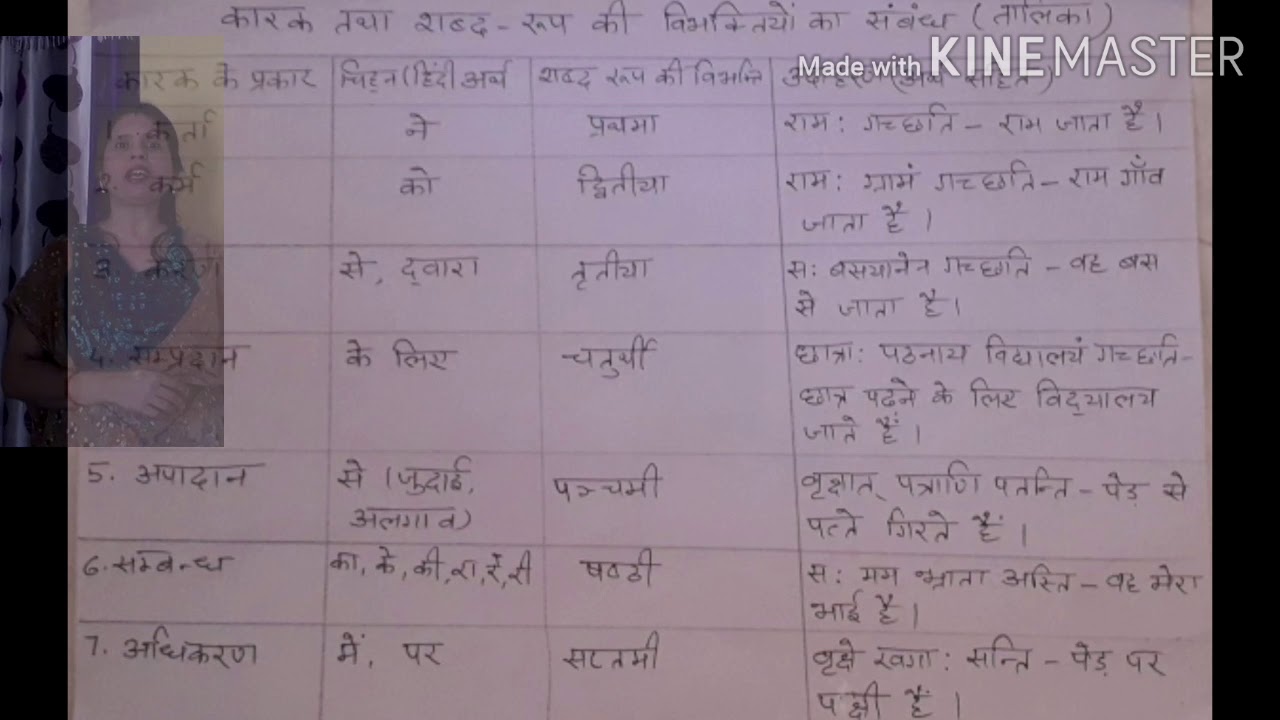 कारक तथा शब्द - रूप की विभक्तियों का संबंध (तालिका)
Made with KINEMASTER
कारक के प्रकार चिह्न (हिंदी अर्थ शब्द रूप की विभक्ति उदाहरण (अर्थ सहित)
1. कर्ता ने प्रथमा रामः गच्छति - राम जाता है।
2. कर्म को द्वितीया रामः ग्रामं गच्छति - राम गाँव
जाता है।
3. करण से, द्वारा तृतीया सः बसयानेन गच्छति - वह बस
से जाता है।
4. सम्प्रदान के लिए चतुर्थी छात्राः पठनाय विद्यालयं गच्छति -
छात्र पढने के लिए विद्यालय
जाते हैं।
5. अपादान से (जुदाई, पञ्चमी वृक्षात् पत्राणि पतन्ति - पेड़ से
अलगाव) पत्ते गिरते हैं।
6. सम्बन्ध का, के, की, रा, रे, री षष्ठी सः मम भ्राता अस्ति - वह मेरा
भाई है।
7. अधिकरण में, पर सप्तमी वृक्षे खगाः सन्ति - पेड़ पर
पक्षी हैं।